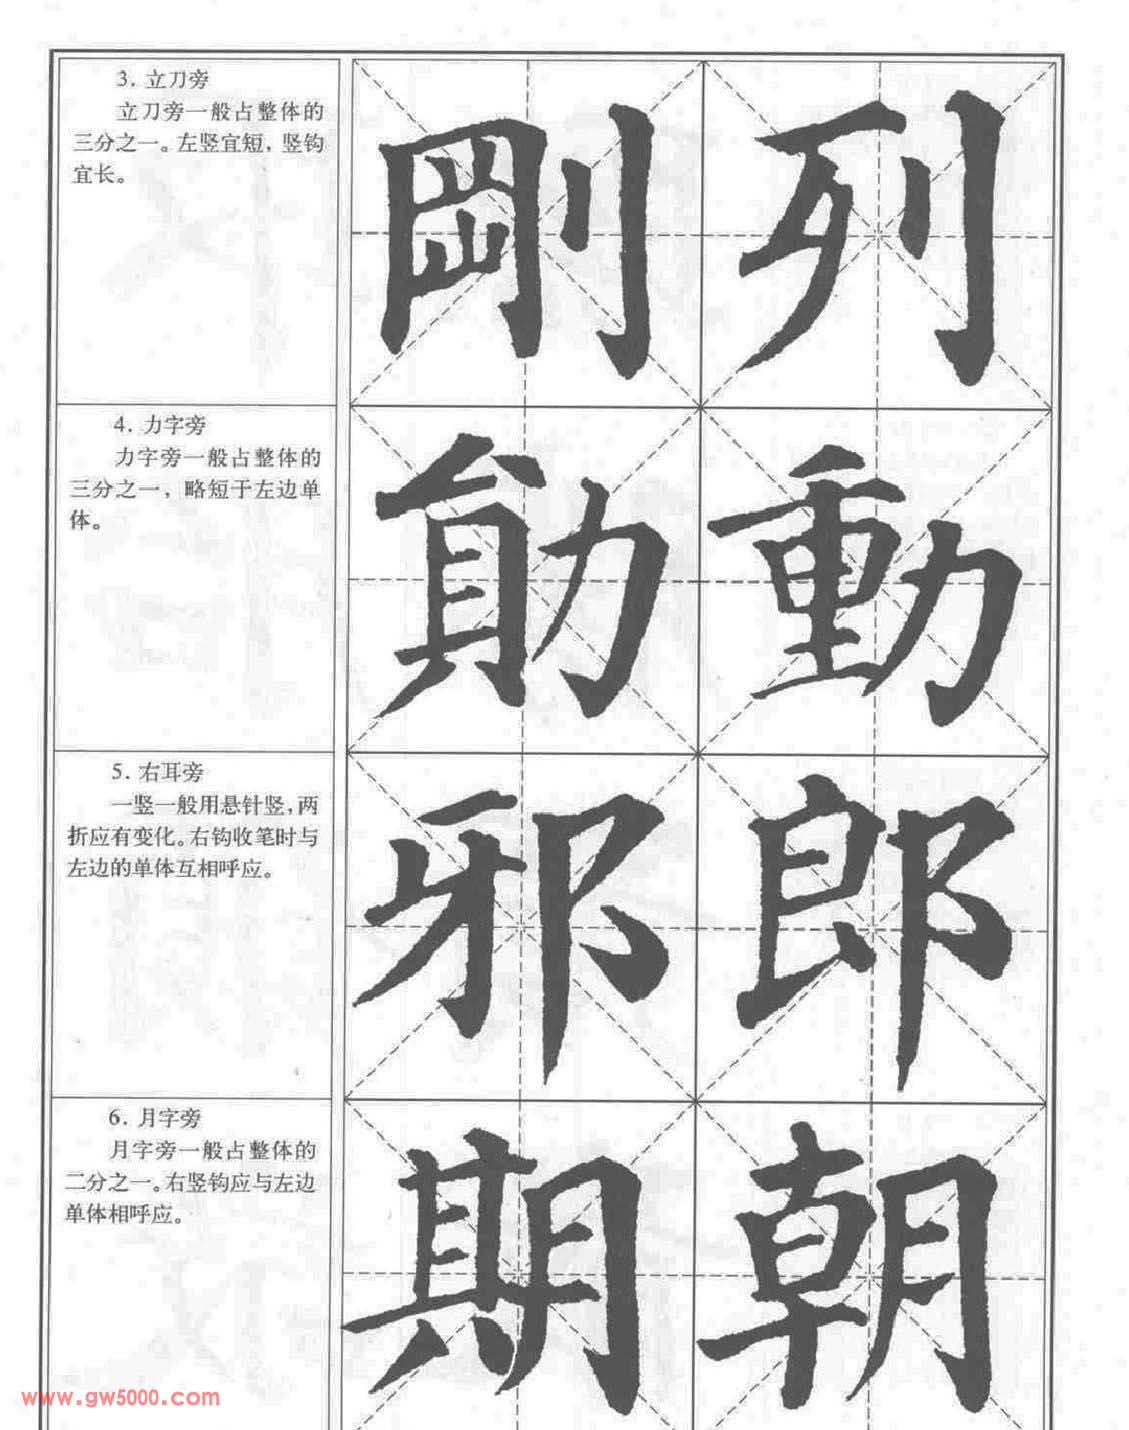 3. 立刀旁
立刀旁一般占整体的
三分之一。左竖宜短，竖钩
宜长。
剛 列
4. 力字旁
力字旁一般占整体的
三分之一，略短于左边单
体。
勛 動
5. 右耳旁
一竖一般用悬针竖，两
折应有变化。右钩收笔时与
左边的单体互相呼应。
邪 郎
6. 月字旁
月字旁一般占整体的
二分之一。右竖钩应与左边
单体相呼应。
期 朝
www.gw5000.com